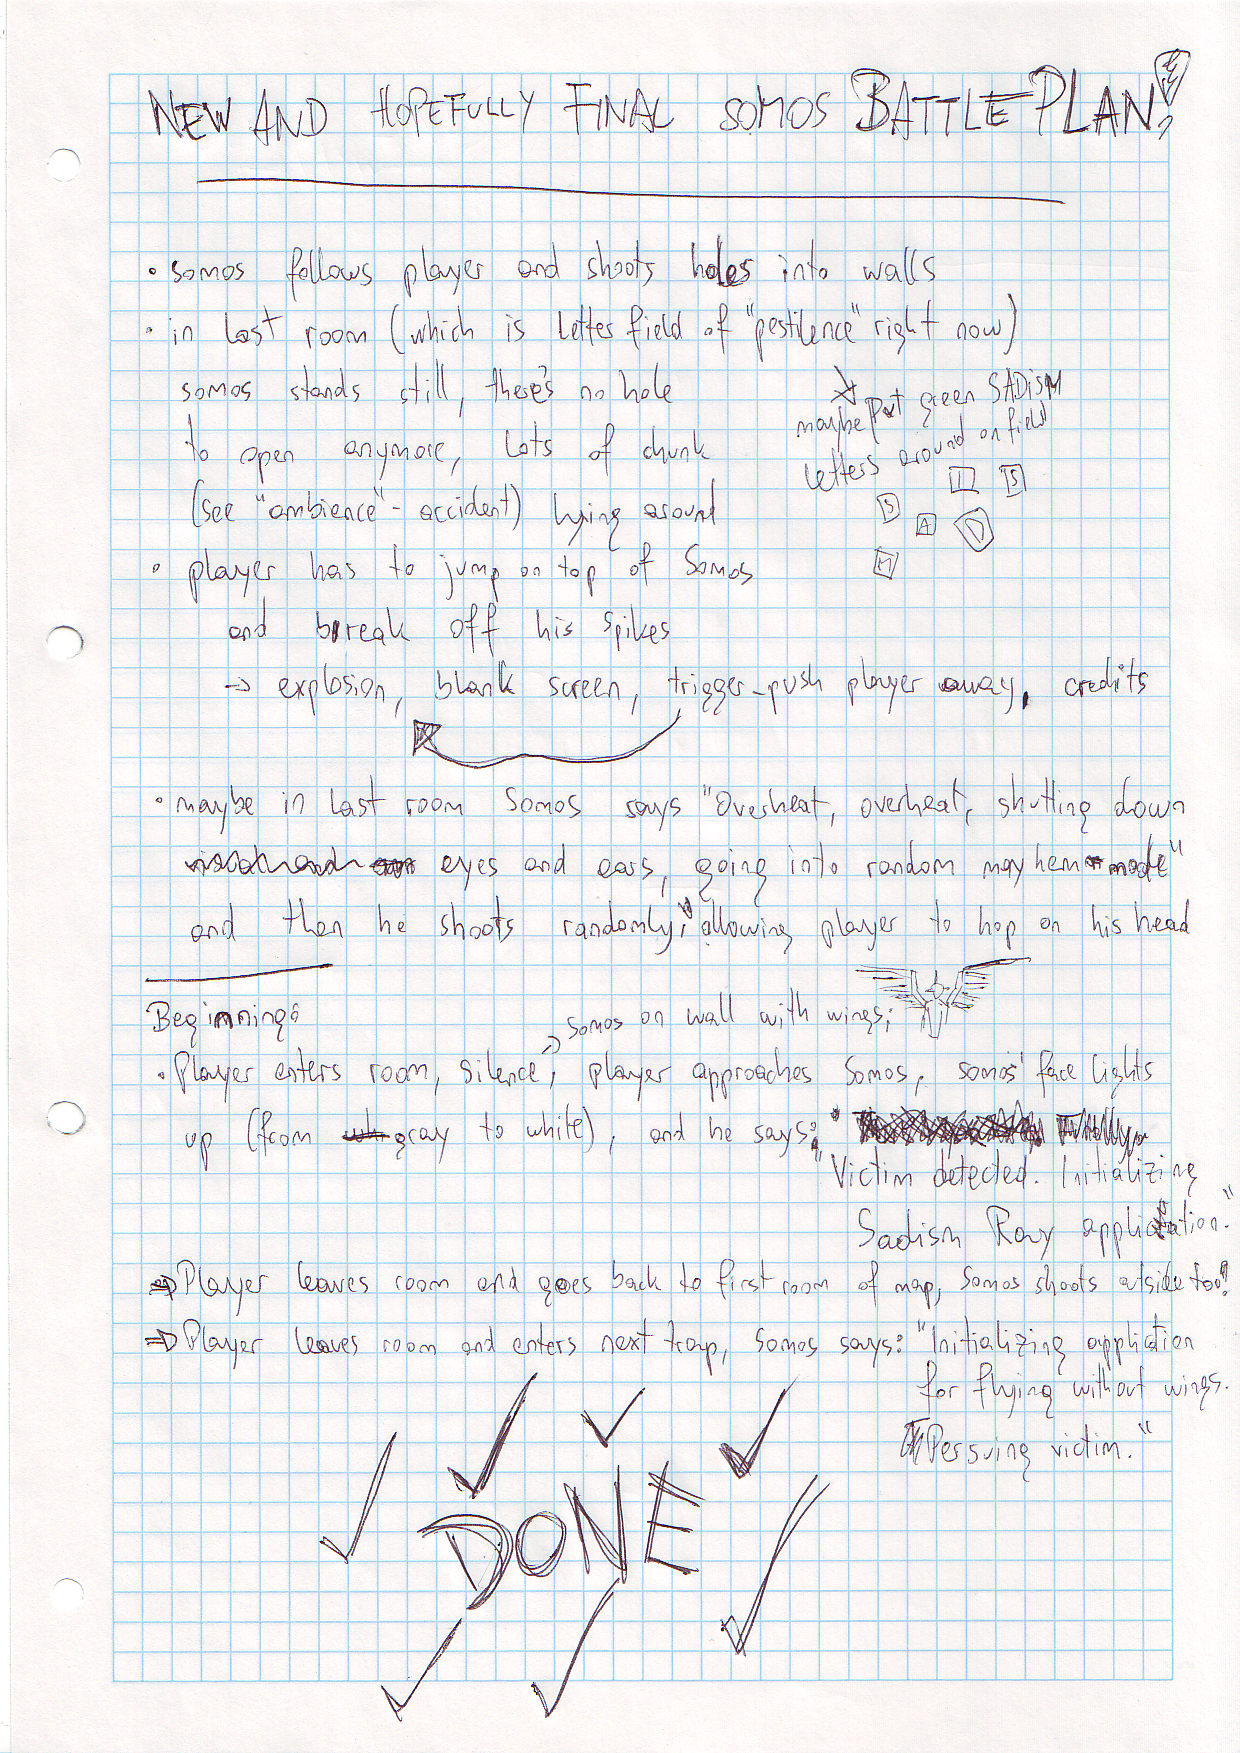 NEW AND HOPEFULLY FINAL SOMOS BATTLE PLAN!
• somos follows player and shoots holes into walls
• in last room (which is letter field of "pestilence" right now)
somos stands still, there's no hole
to open anymore, lots of chunk
(see "ambience"-accident) lying around
maybe put green SADISM
letters around on field
I S
S A D
M
• player has to jump on top of Somos
and break off his spikes
→ explosion, blank screen, trigger-push player away, credits
• maybe in last room Somos says "Overheat, overheat, shutting down
eyes and ears, going into random mayhem mode"
and then he shoots randomly, allowing player to hop on his head
Beginning:
→ Somos on wall with wings;
• Player enters room, silence, player approaches Somos, somos' face lights
up (from gray to white), and he says:
"Victim detected. Initializing
Sadism Ray application."
⇒ Player leaves room and goes back to first room of map, Somos shoots outside too!
⇒ Player leaves room and enters next trap, Somos says: "Initializing application
for flying without wings.
Persuing victim."
DONE